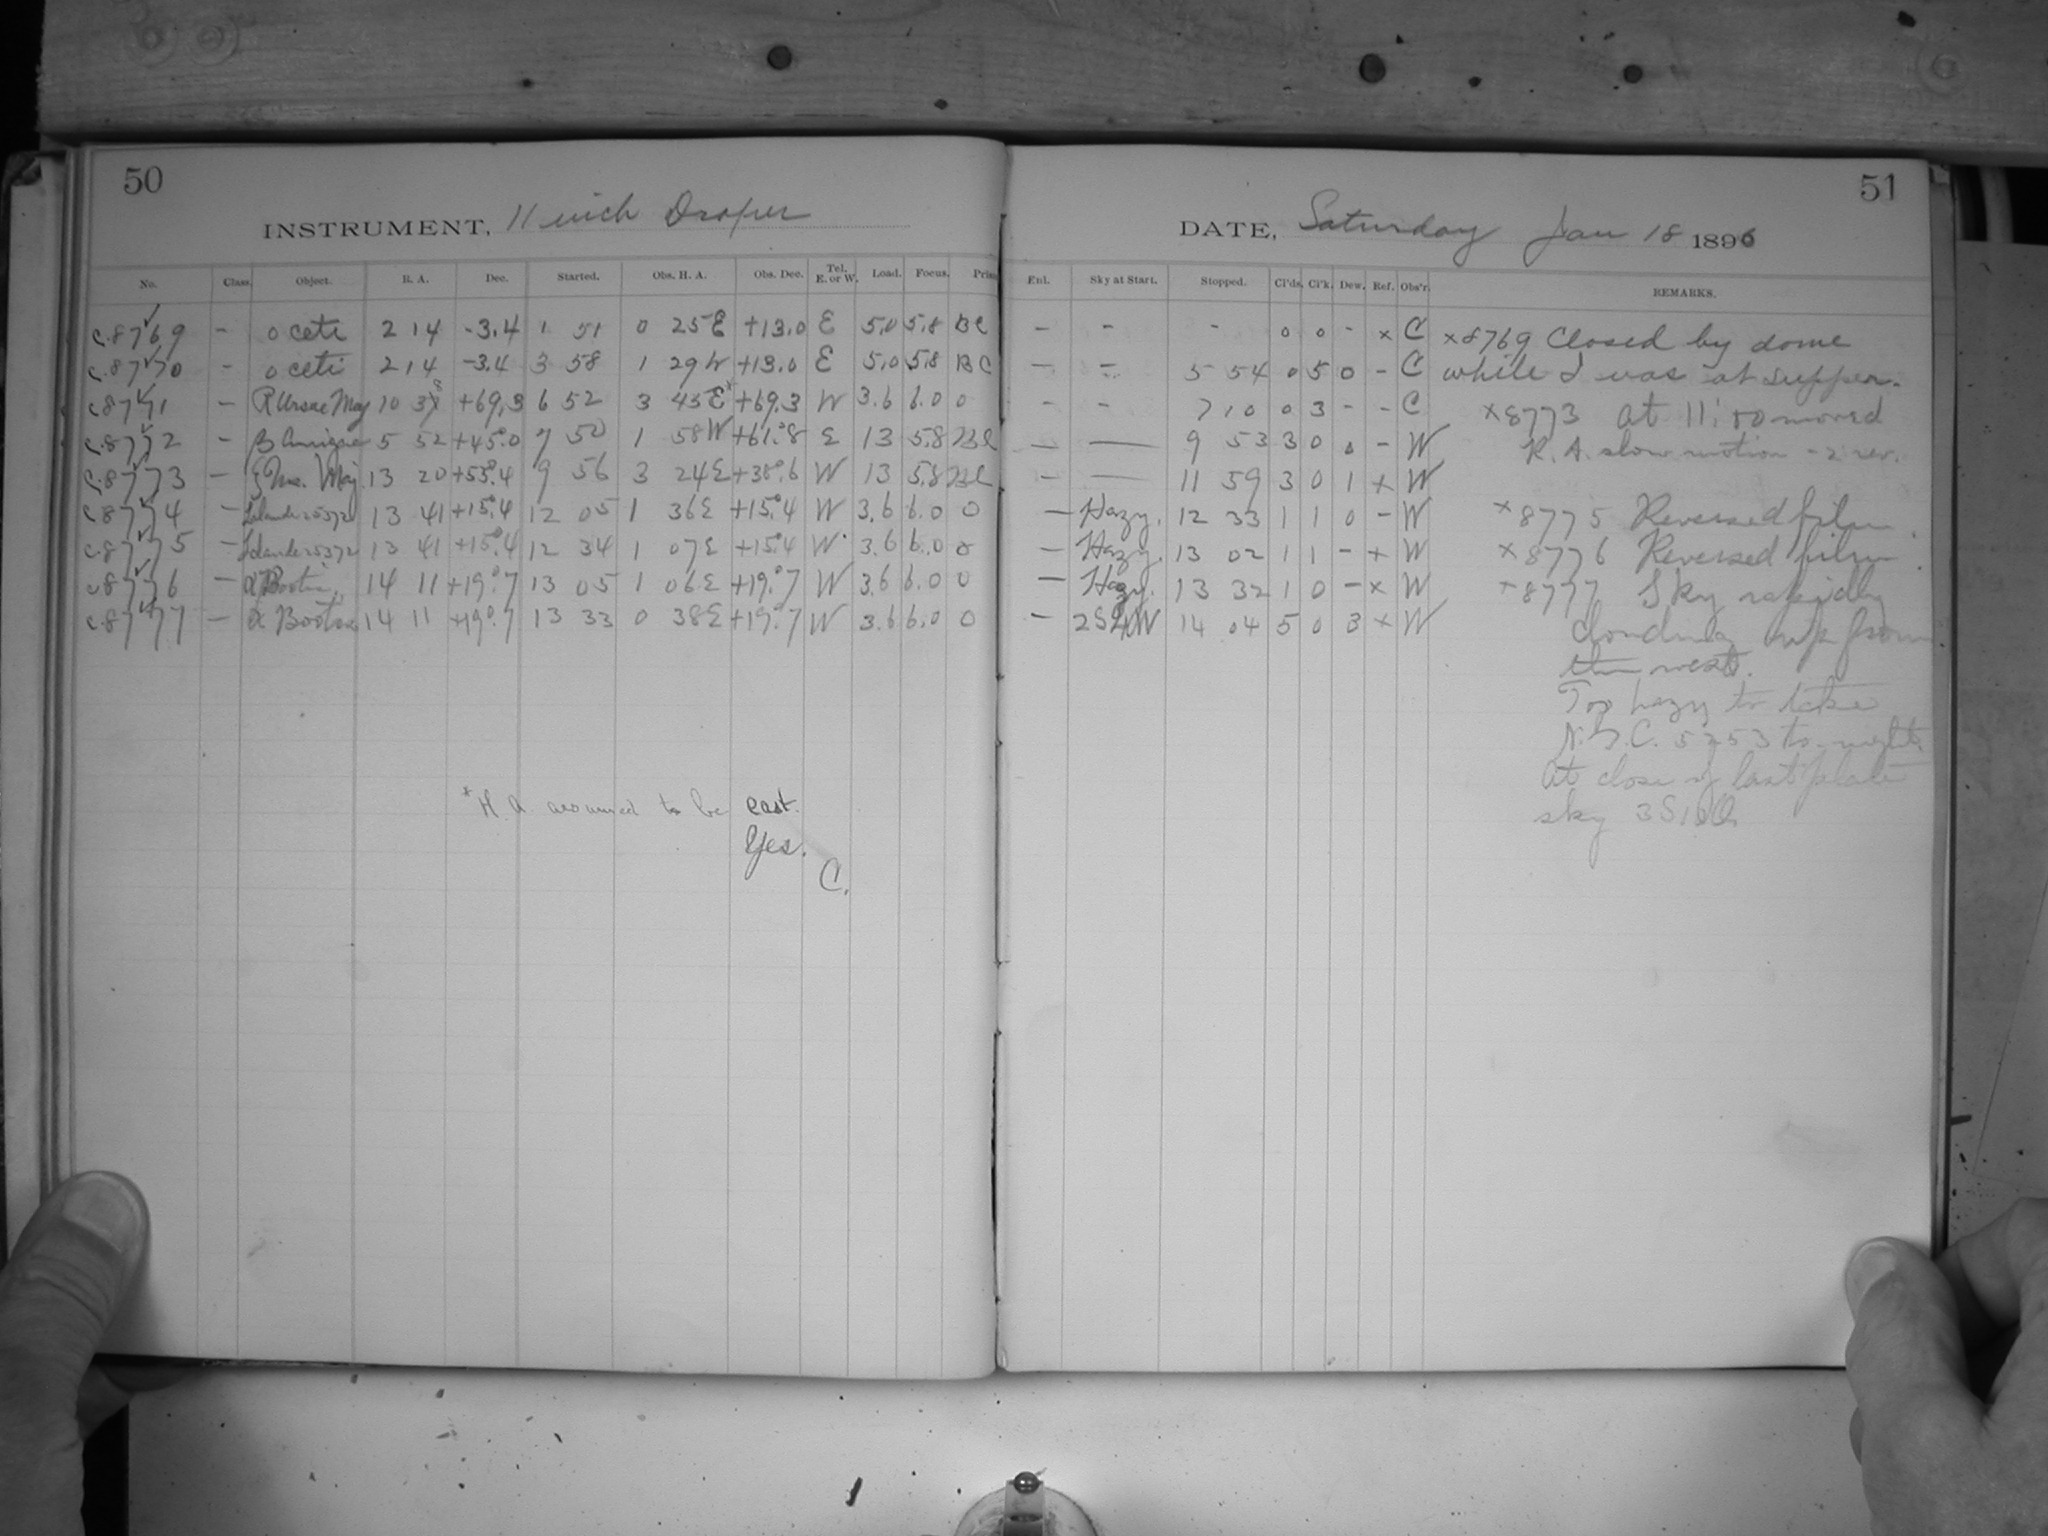 50
INSTRUMENT, 11 inch Draper
No. Class. Object. R. A. Dec. Started. Obs. H. A. Obs. Dec. Tel. E. or W. Load. Focus.
c.8769 - o ceti 2 14 -3.4 1 51 0 25E +13.0 E 5.0 5.8 BC
c.8770 - o ceti 2 14 -3.4 3 58 1 29W +13.0 E 5.0 5.8 BC
c8771 - R Ursae Maj 10 +69.3 6 52 3 45E* +69.3 W 3.6 6.0 0
c.8772 - β Aurigae 5 52 +45.°0 7 50 1 58W +61.°8 E 13 5.8
c.8773 - ζ Urs. Maj. 13 20 +55.°4 9 56 3 24E +38.°6 W 13 5.8
c8774 - Lalande 25372 13 41 +15.°4 12 05 1 36E +15.°4 W 3.6 6.0 0
c8775 - Lalande 25372 13 41 +15.°4 12 34 1 07E +15.°4 W. 3.6 6.0 0
c8776 - α Bootis 14 11 +19.°7 13 05 1 06E +19.°7 W 3.6 6.0 0
c.8777 - α Bootis 14 11 +19.°7 13 33 0 38E +19.°7 W 3.6 6.0 0
*H. A. assumed to be east.
Yes.
C.
51
DATE, Saturday Jan 18 1896
Enl. Sky at Start. Stopped. Cl'ds. Cl'k. Dew. Ref. Obs'r. REMARKS.
- - - 0 0 - x C x8769 Closed by dome
- - 5 54 0 5 0 - C while I was at supper.
- - 7 10 0 3 - - C x8773 at 11:00 moved
- — 9 53 3 0 0 - W R. A. slow motion -2 rev.
- — 11 59 3 0 1 x W
— Hazy. 12 33 1 1 0 - W x8775 Reversed film
— Hazy. 13 02 1 1 - x W x8776 Reversed film
— Hazy. 13 32 1 0 - x W x8777 Sky rapidly
— 14 04 5 0 3 x W clouding up from
the west.
Too hazy to take
N.G.C. 5253 to-night.
At close of last plate
sky